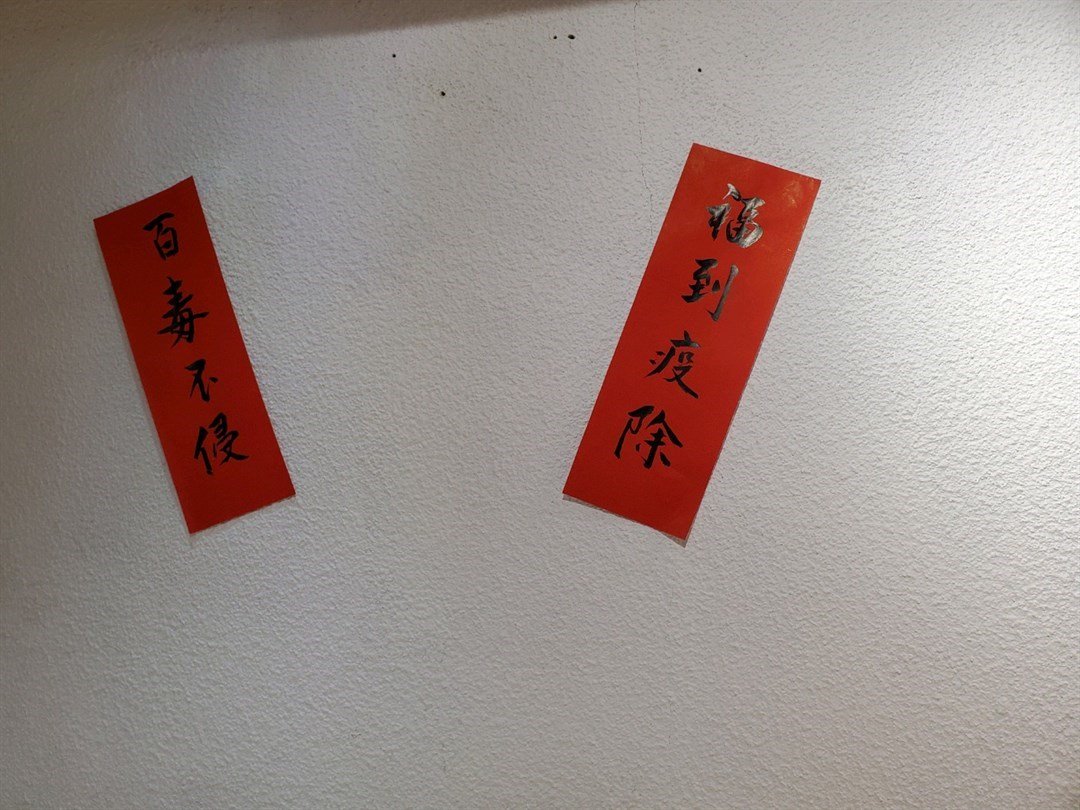 福到疫除
百毒不侵